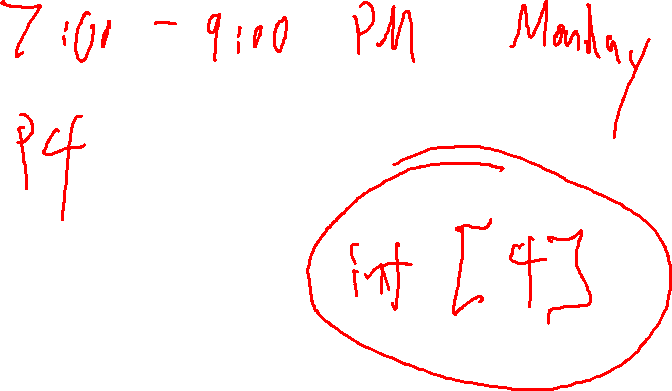 7:00 - 9:00 PM Monday
P4
int [4]